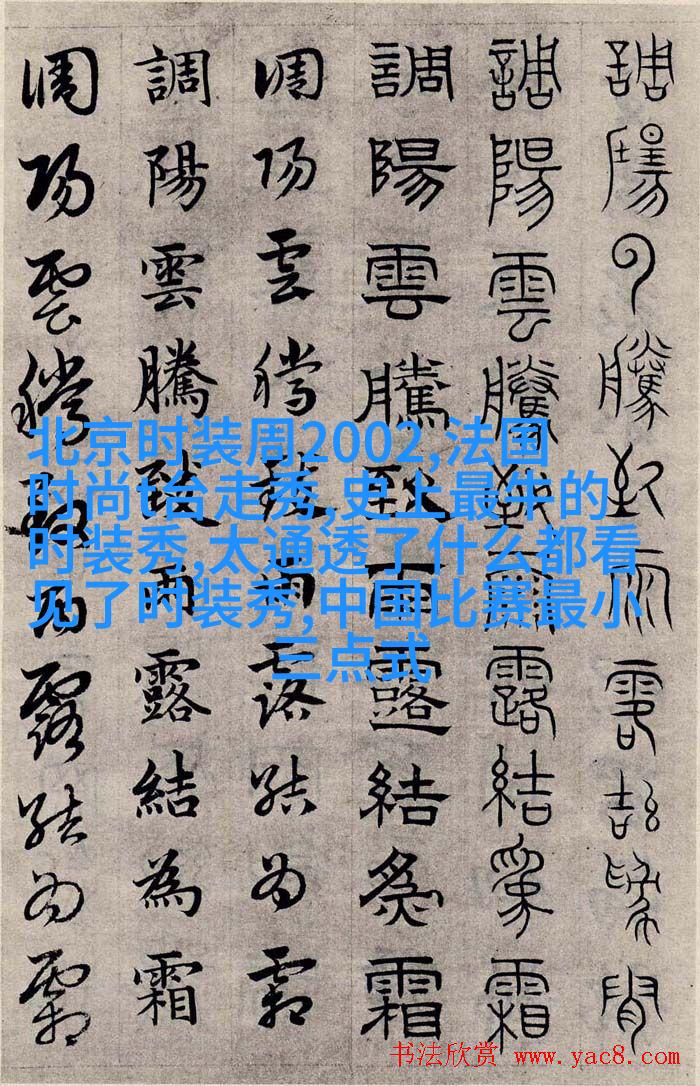 調陽雲騰致雨露結為霜
調陽雲騰致雨露結為霜
調陽雲騰致雨露結為霜
調陽雲騰致雨露結為霜
調陽雲騰致雨露結為霜
調陽雲騰致雨露結為霜
北京时装周2002,法国
时尚t台走秀,史上最牛的
时装秀,太通透了什么都看
见了时装秀,中国比赛最小
三点式
书法欣赏 www.yac8.com